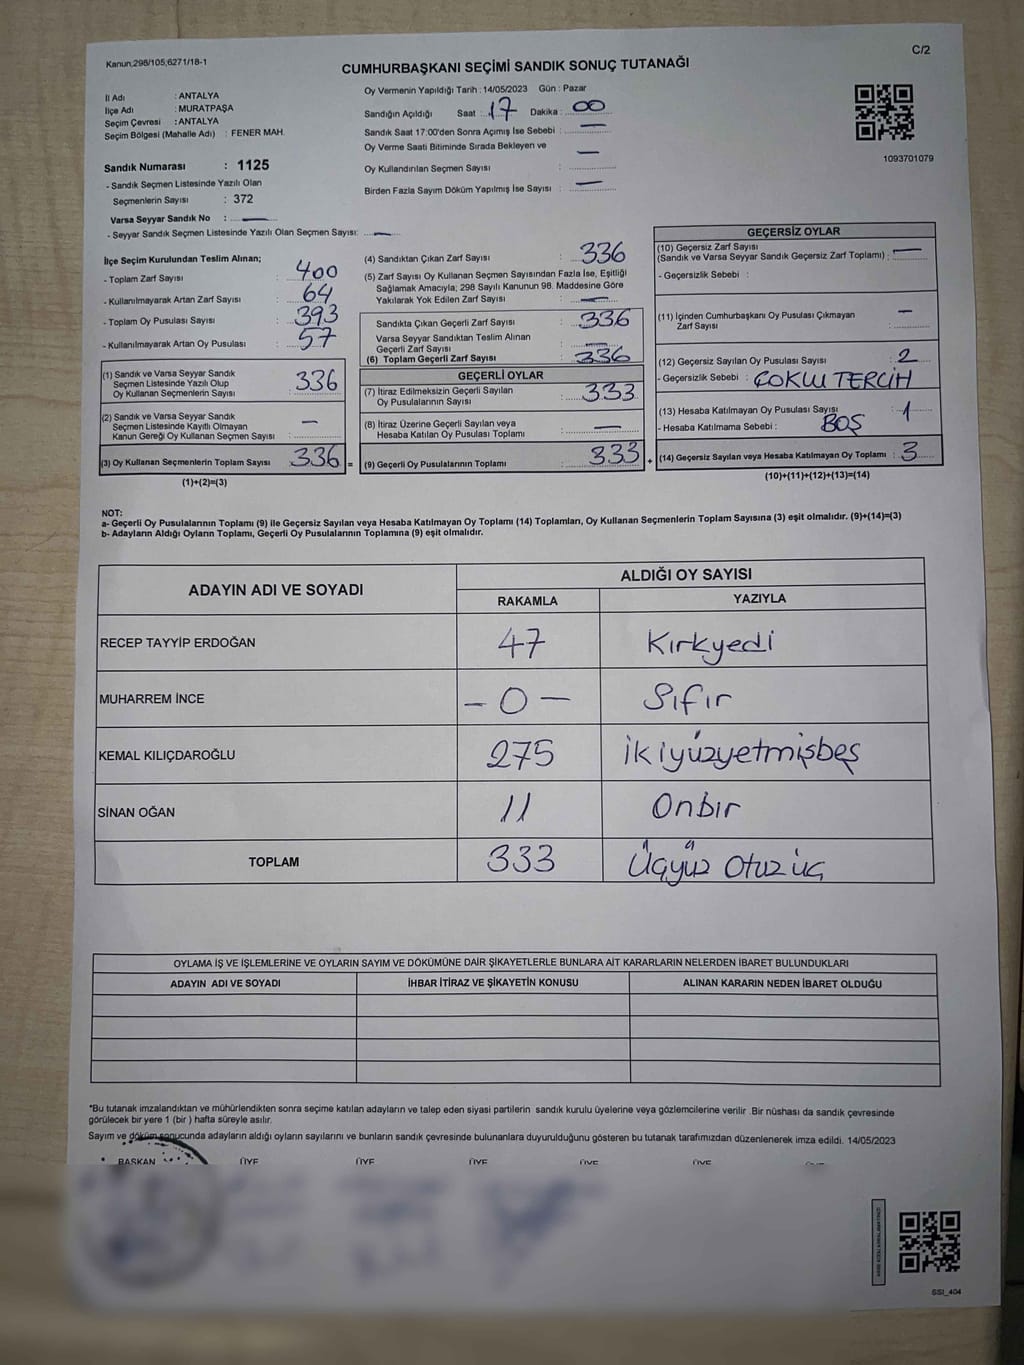 Kanun,298/105;6271/18-1
C/2
CUMHURBAŞKANI SEÇİMİ SANDIK SONUÇ TUTANAĞI
İl Adı : ANTALYA
İlçe Adı : MURATPAŞA
Seçim Çevresi : ANTALYA
Seçim Bölgesi (Mahalle Adı) : FENER MAH.
Sandık Numarası : 1125
- Sandık Seçmen Listesinde Yazılı Olan
Seçmenlerin Sayısı : 372
Varsa Seyyar Sandık No : —
- Seyyar Sandık Seçmen Listesinde Yazılı Olan Seçmen Sayısı: —
Oy Vermenin Yapıldığı Tarih : 14/05/2023 Gün : Pazar
Sandığın Açıldığı Saat : 17 Dakika : 00
Sandık Saat 17:00'den Sonra Açımış İse Sebebi : —
Oy Verme Saati Bitiminde Sırada Bekleyen ve
Oy Kullandırılan Seçmen Sayısı : —
Birden Fazla Sayım Döküm Yapılmış İse Sayısı : —
1093701079
İlçe Seçim Kurulundan Teslim Alınan;
- Toplam Zarf Sayısı : 400
- Kullanılmayarak Artan Zarf Sayısı : 64
- Toplam Oy Pusulası Sayısı : 393
- Kullanılmayarak Artan Oy Pusulası : 57
(1) Sandık ve Varsa Seyyar Sandık
Seçmen Listesinde Yazılı Olup
Oy Kullanan Seçmenlerin Sayısı : 336
(2) Sandık ve Varsa Seyyar Sandık
Seçmen Listesinde Kayıtlı Olmayan
Kanun Gereği Oy Kullanan Seçmen Sayısı : —
(3) Oy Kullanan Seçmenlerin Toplam Sayısı : 336 =
(1)+(2)=(3)
(4) Sandıktan Çıkan Zarf Sayısı : 336
(5) Zarf Sayısı Oy Kullanan Seçmen Sayısından Fazla İse, Eşitliği
Sağlamak Amacıyla; 298 Sayılı Kanunun 98. Maddesine Göre
Yakılarak Yok Edilen Zarf Sayısı : —
Sandıkta Çıkan Geçerli Zarf Sayısı : 336
Varsa Seyyar Sandıktan Teslim Alınan
Geçerli Zarf Sayısı : —
(6) Toplam Geçerli Zarf Sayısı : 336
GEÇERLİ OYLAR
(7) İtiraz Edilmeksizin Geçerli Sayılan
Oy Pusulalarının Sayısı : 333
(8) İtiraz Üzerine Geçerli Sayılan veya
Hesaba Katılan Oy Pusulası Toplamı : —
(9) Geçerli Oy Pusulalarının Toplamı : 333 +
GEÇERSİZ OYLAR
(10) Geçersiz Zarf Sayısı
(Sandık ve Varsa Seyyar Sandık Geçersiz Zarf Toplamı) : —
- Geçersizlik Sebebi :
(11) İçinden Cumhurbaşkanı Oy Pusulası Çıkmayan
Zarf Sayısı : —
(12) Geçersiz Sayılan Oy Pusulası Sayısı : 2
- Geçersizlik Sebebi : ÇOKLU TERCİH
(13) Hesaba Katılmayan Oy Pusulası Sayısı : 1
- Hesaba Katılmama Sebebi : BOŞ
(14) Geçersiz Sayılan veya Hesaba Katılmayan Oy Toplamı : 3
(10)+(11)+(12)+(13)=(14)
NOT:
a- Geçerli Oy Pusulalarının Toplamı (9) ile Geçersiz Sayılan veya Hesaba Katılmayan Oy Toplamı (14) Toplamları, Oy Kullanan Seçmenlerin Toplam Sayısına (3) eşit olmalıdır. (9)+(14)=(3)
b- Adayların Aldığı Oyların Toplamı, Geçerli Oy Pusulalarının Toplamına (9) eşit olmalıdır.
ADAYIN ADI VE SOYADI
ALDIĞI OY SAYISI
RAKAMLA YAZIYLA
RECEP TAYYİP ERDOĞAN 47 Kırkyedi
MUHARREM İNCE - 0 - Sıfır
KEMAL KILIÇDAROĞLU 275 ikiyüzyetmişbeş
SİNAN OĞAN 11 Onbir
TOPLAM 333 Üçyüz Otuz üç
OYLAMA İŞ VE İŞLEMLERİNE VE OYLARIN SAYIM VE DÖKÜMÜNE DAİR ŞİKAYETLERLE BUNLARA AİT KARARLARIN NELERDEN İBARET BULUNDUKLARI
ADAYIN ADI VE SOYADI İHBAR İTİRAZ VE ŞİKAYETİN KONUSU ALINAN KARARIN NEDEN İBARET OLDUĞU
*Bu tutanak imzalandıktan ve mühürlendikten sonra seçime katılan adayların ve talep eden siyasi partilerin sandık kurulu üyelerine veya gözlemcilerine verilir .Bir nüshası da sandık çevresinde
görülecek bir yere 1 (bir ) hafta süreyle asılır.
Sayım ve döküm sonucunda adayların aldığı oyların sayılarını ve bunların sandık çevresinde bulunanlara duyurulduğunu gösteren bu tutanak tarafımızdan düzenlenerek imza edildi. 14/05/2023
BAŞKAN ÜYE ÜYE ÜYE ÜYE ÜYE
SSI_404